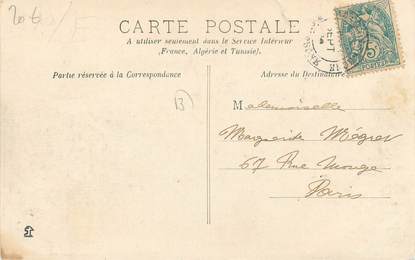 CARTE POSTALE
A utiliser seulement dans le Service Intérieur
(France, Algérie et Tunisie).
Partie réservée à la Correspondance
Adresse du Destinataire
B
Mademoiselle
Marguerite Mégret
67 Rue Monge
Paris
SEPT
5